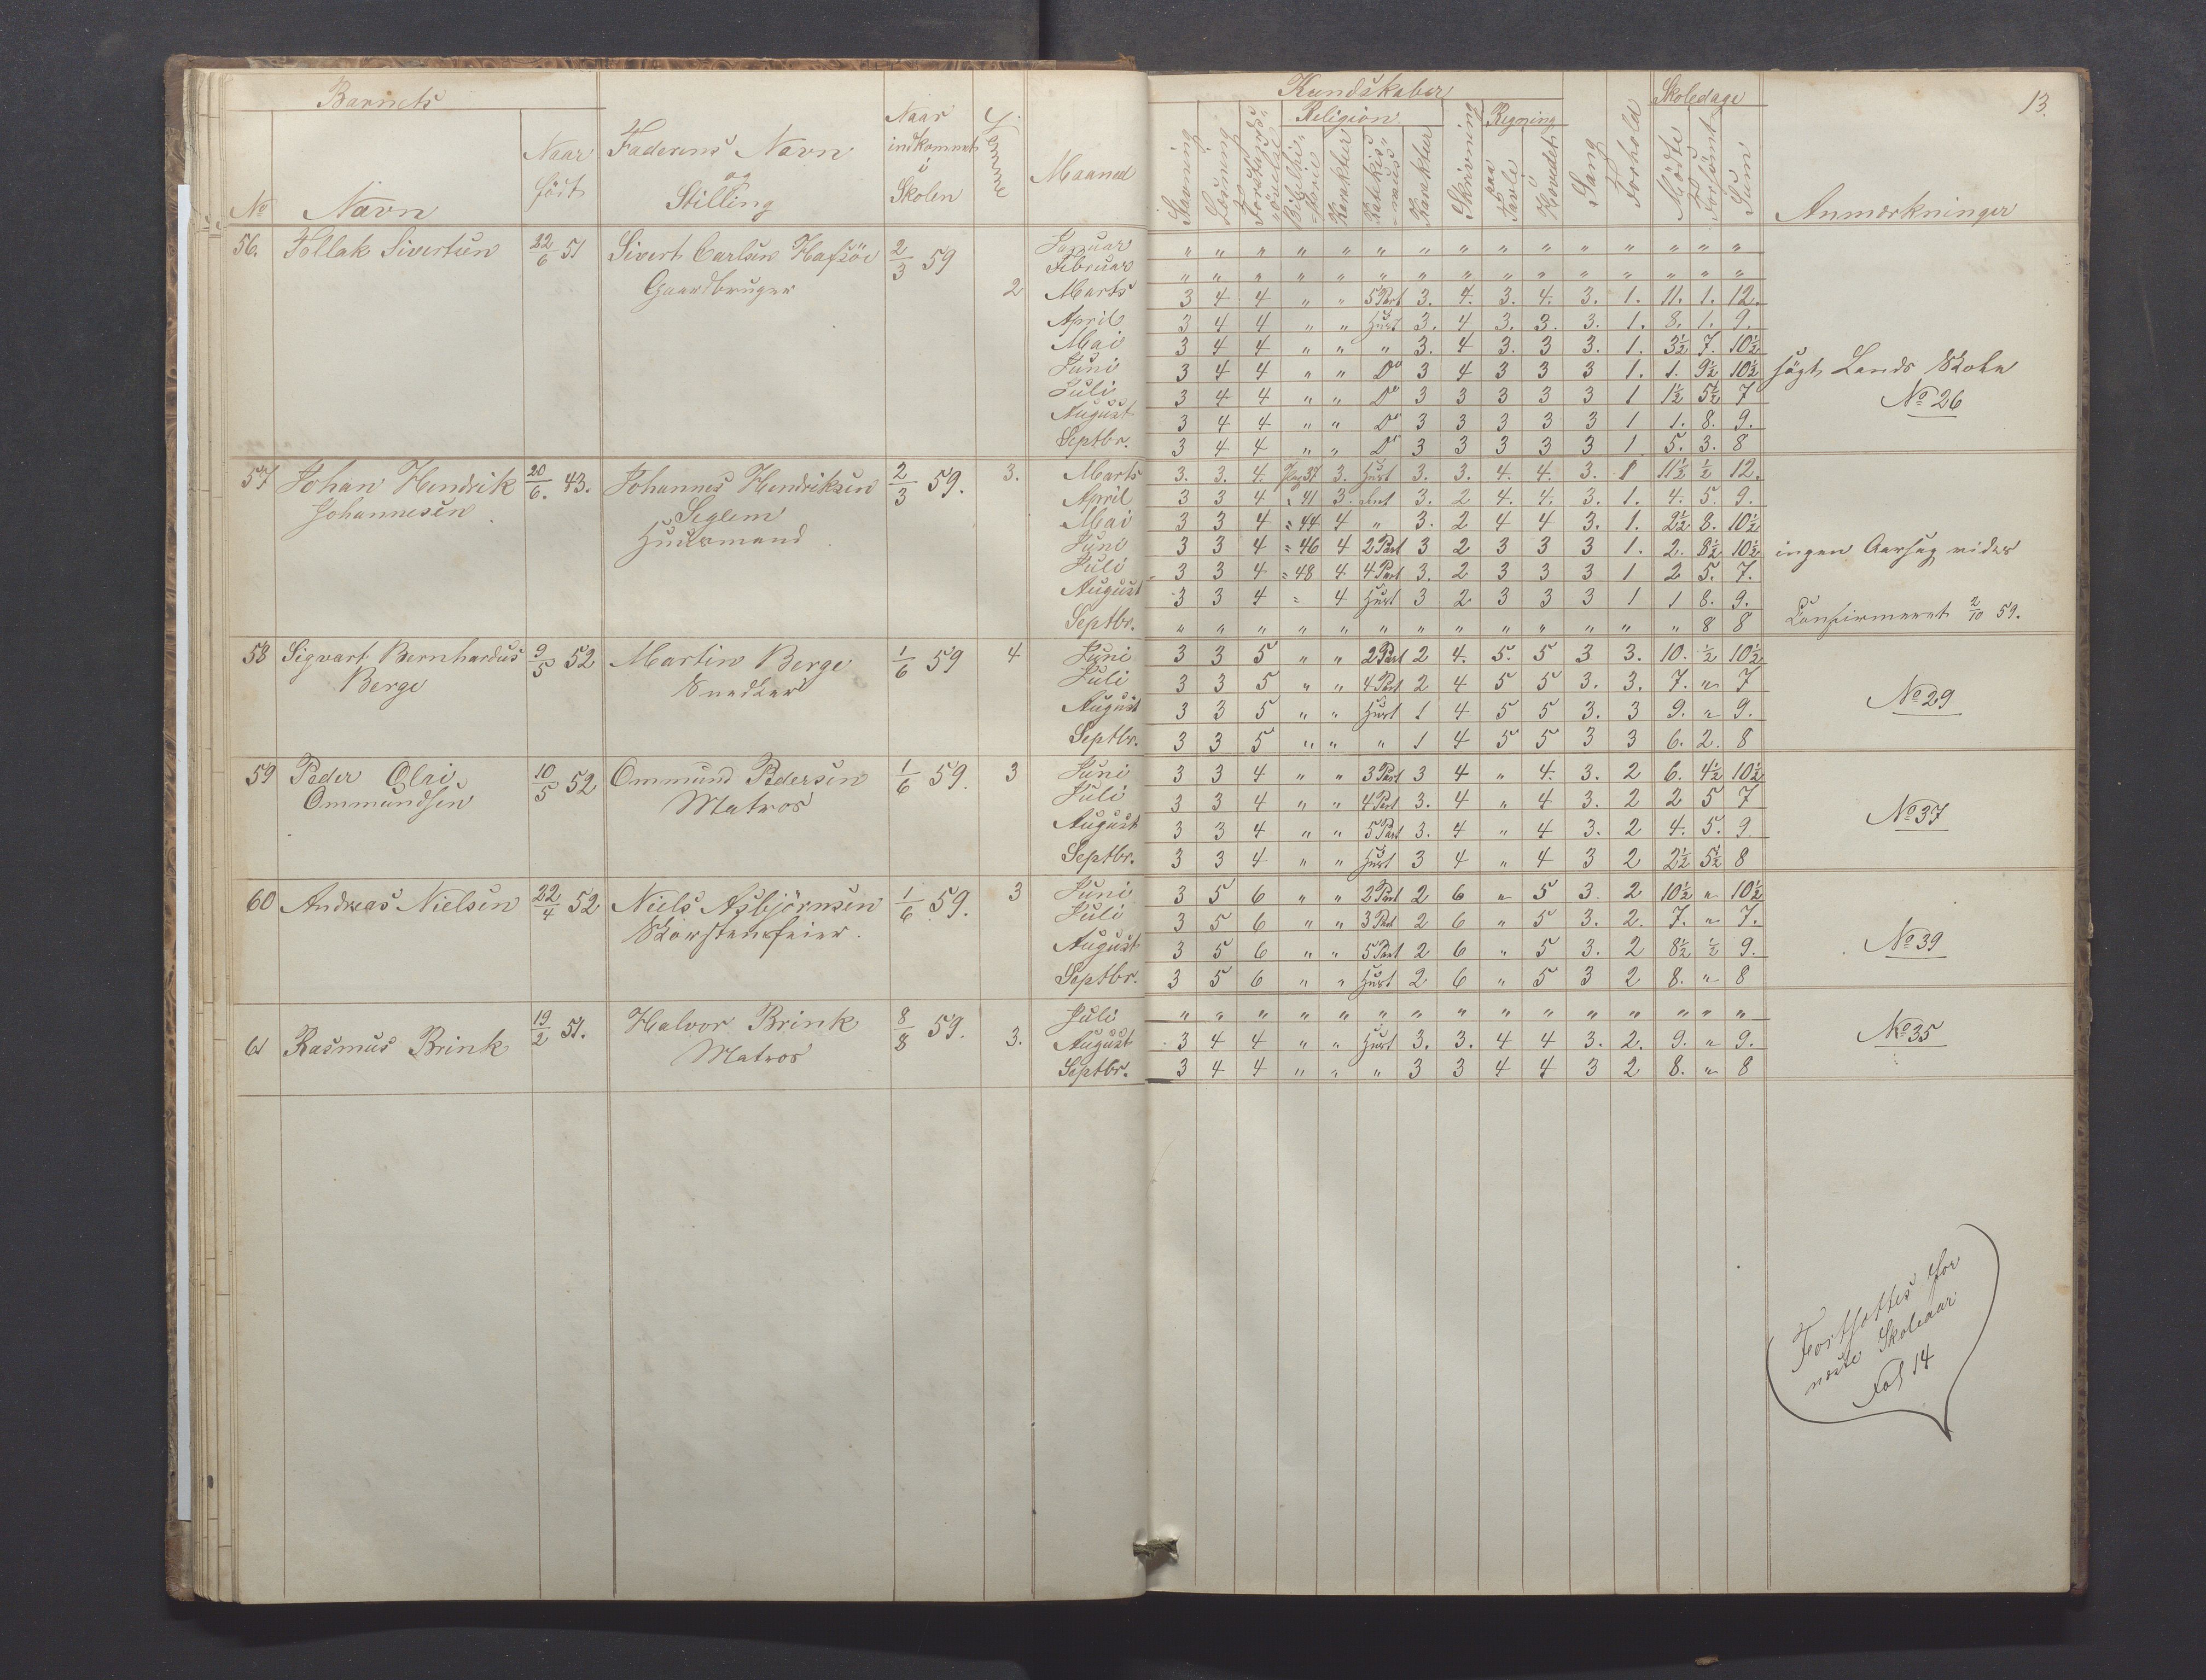 13.
Barnets
No
Navn
Naar
født
Faderens Navn
og
Stilling
Naar
indkommet
i
Skolen
Maaned
Kundskaber
Stavning
Læsning
Religion
Karaktur
Karaktur
Skrivning
Regning
paa
Tavle
i
Hovedet
Sang
Forhold
Skoledage
Mødte
Forsømt
Sum
Anmærkninger
56. Tollak Sivertsen 22/6 51 Sivert Carlsen Hafsöe 2/3 59 2
Gaardbruger
Januar " " " " " " " " " " " " " " "
Februar " " " " " " " " " " " " " " "
Marts 3 4 4 " " 5 Part 3. 4. 3. 4. 3. 1. 11. 1. 12.
April 3 4 4 " " Hust 3. 4 3. 3. 3. 1. 8. 1. 9.
Mai 3 4 4 " " " 3. 4 3. 3 3. 1. 3½ 7. 10½
Juni 3 4 4 " " Do 3 4 3 3 3 1. 1. 9½ 10½
Juli 3 4 4 " " Do 3 3 3 3 3 1 1½ 5½ 7
August 3 4 4 " " Do 3 3 3 3 3 1 1. 8. 9.
Septbr. 3 4 4 " " Do 3 3 3 3 3 1 5. 3. 8
søgt Lands Skole
No 26
57 Johan Hendrik 20/6. 43. Johannes Hendriksen 2/3 59. 3.
Johannesen
Seglem
Huusmand
Marts 3. 3. 4. Pag 37 3. Hust 3. 3. 4. 4. 3. 1 11½ ½ 12.
April 3 3 4 " 41 3. 3. 2 4. 4. 3. 1. 4. 5. 9.
Mai 3 3 4 = 44 4 " 3. 2 4 4 3. 1. 2½ 8. 10½
Juni 3 3 4 = 46 4 2 Part 3 2 3 3 3 1. 2. 8½ 10½
Juli 3 3 4 = 48 4 4 Part 3. 2 3 3 3 1 2 5. 7.
August 3 3 4 = 4 Hust 3 2 3 3 3 1 1 8. 9.
Septbr. " " " " " " " " " " " " " 8 8
ingen
Confirmeret 2/10 59.
58 Sigvart Bernhardus 9/5 52 Martin Berge 1/6 59 4
Berge
Snedker
Juni 3 3 5 " " 2 Part 2 4. 5. 5 3 3. 10. ½ 10½
Juli 3 3 5 " " 4 Part 2 4 5 5 3. 3. 7. " 7
August 3 3 5 " " Hust 1 4 5 5 3. 3 9. " 9.
Septbr. 3 3 5 " " " 1 4 5 5 3 3 6. 2. 8
No 29
59 Peder Olai 10/5 52 Ommund Pedersen 1/6 59. 3
Ommundsen
Matros
Juni 3 3 4 " " 3 Part 3 4 " 4. 3. 2 6. 4½ 10½
Juli 3 3 4 " " 4 Part 3. 4 " 4 3. 2 2 5 7
August 3 3 4 " " 5 Part 3. 4 " 4 3. 2 4. 5. 9
Septbr. 3 3 4 " " Hust 3 4 " 4 3 2 2½ 5½ 8
No 37
60 Andreas Nielsen 22/4 52 Niels Asbjörnsen 1/6 59. 3
Skorstensfeier.
Juni 3 5 6 " " 2 Part 2 6 " 5 3. 2 10½ " 10½
Juli 3 5 6 " " 3 Part 2 6 " 5 3. 2. 7. " 7.
August 3 5 6 " " 5 Part 2 6 " 5 3. 2 8½ ½ 9.
Septbr. 3 5 6 " " Hust 2 6 " 5 3 2 8. " 8
No 39
61 Rasmus Brink 19/2 51. Halvor Brink 8/8 59. 3.
Matros
Juli " " " " " " " " " " " " " " "
August 3 4 4 " " Hust 3. 3. 4 4 3. 2. 9. " 9.
Septbr. 3 4 4 " " " 3 3 4 4 3 2 8. " 8
No 35
Fortsættes for
næste Skoleaar
Fol 14